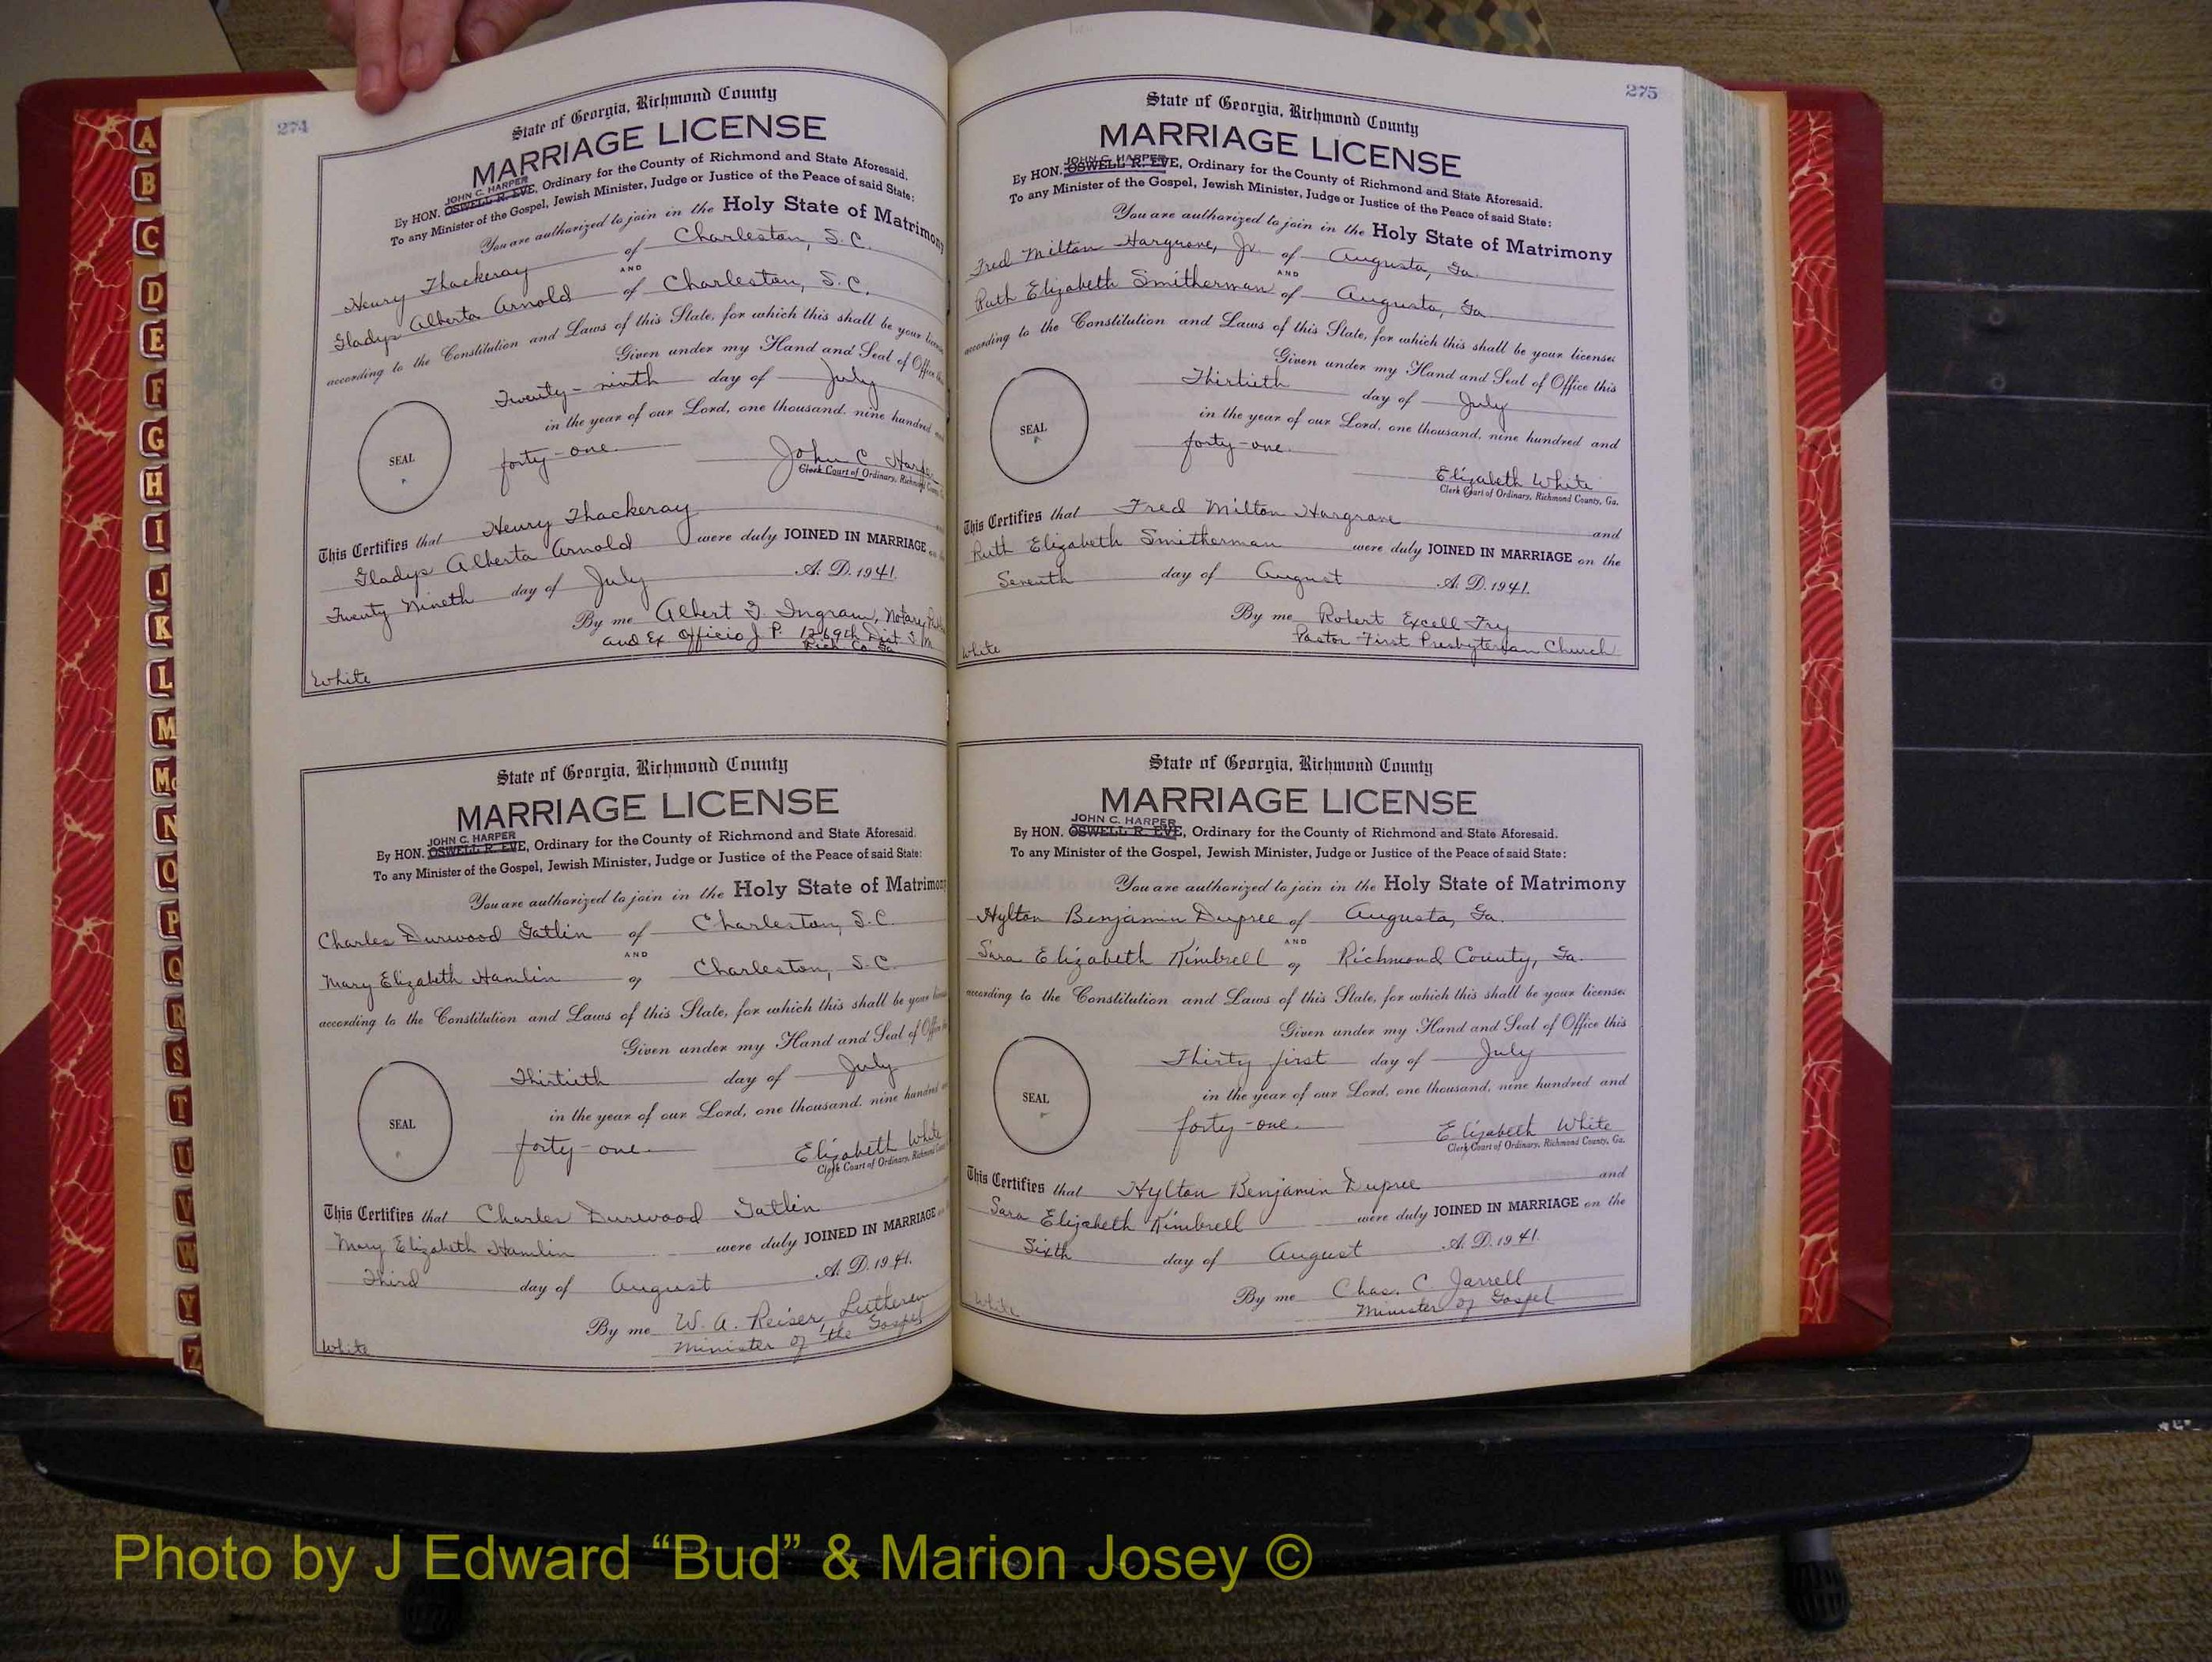 A
B
C
D
E
F
G
H
I
J
K
L
M
Mc
N
O
P
Q
R
S
T
U
V
W
Y
Z
274
State of Georgia, Richmond County
MARRIAGE LICENSE
JOHN C. HARPER
By HON. OSWELL R. EVE, Ordinary for the County of Richmond and State Aforesaid.
To any Minister of the Gospel, Jewish Minister, Judge or Justice of the Peace of said State:
You are authorized to join in the Holy State of Matrimony
Henry Thackeray of Charleston, S.C.
AND
Gladys Alberta Arnold of Charleston, S.C.
according to the Constitution and Laws of this State, for which this shall be your license
Given under my Hand and Seal of Office this
Twenty-ninth day of July
in the year of our Lord, one thousand, nine hundred and
SEAL
forty-one.
John C. Harper
Clerk Court of Ordinary, Richmond County, Ga.
This Certifies that Henry Thackeray
Gladys Alberta Arnold were duly JOINED IN MARRIAGE on the
Twenty Nineth day of July A. D. 1941.
By me Albert G. Ingram, Notary Public
and Ex Officio J. P. 1269th Dist G M
Rich Co Ga
White
State of Georgia, Richmond County
MARRIAGE LICENSE
JOHN C. HARPER
By HON. OSWELL R. EVE, Ordinary for the County of Richmond and State Aforesaid.
To any Minister of the Gospel, Jewish Minister, Judge or Justice of the Peace of said State:
You are authorized to join in the Holy State of Matrimony
Charles Durwood Gatlin of Charleston, S.C.
AND
Mary Elizabeth Hamlin of Charleston, S.C.
according to the Constitution and Laws of this State, for which this shall be your license
Given under my Hand and Seal of Office this
Thirtieth day of July
in the year of our Lord, one thousand, nine hundred and
SEAL
forty-one.
Elizabeth White
Clerk Court of Ordinary, Richmond County
This Certifies that Charles Durwood Gatlin
Mary Elizabeth Hamlin were duly JOINED IN MARRIAGE on
Third day of August A. D. 1941.
By me W. A. Reiser, Lutheren
Minister of the Gospel
White
275
State of Georgia, Richmond County
MARRIAGE LICENSE
JOHN C. HARPER
By HON. OSWELL R. EVE, Ordinary for the County of Richmond and State Aforesaid.
To any Minister of the Gospel, Jewish Minister, Judge or Justice of the Peace of said State:
You are authorized to join in the Holy State of Matrimony
Fred Milton Hargrove, Jr. of Augusta, Ga.
AND
Ruth Elizabeth Smitherman of Augusta, Ga.
according to the Constitution and Laws of this State, for which this shall be your license:
Given under my Hand and Seal of Office this
Thirtieth day of July
in the year of our Lord, one thousand, nine hundred and
SEAL
forty-one.
Elizabeth White
Clerk Court of Ordinary, Richmond County, Ga.
This Certifies that Fred Milton Hargrove and
Ruth Elizabeth Smitherman were duly JOINED IN MARRIAGE on the
Seventh day of August A. D. 1941.
By me Robert Excell Fry
Pastor First Presbyterian Church
White
State of Georgia, Richmond County
MARRIAGE LICENSE
JOHN C. HARPER
By HON. OSWELL R. EVE, Ordinary for the County of Richmond and State Aforesaid.
To any Minister of the Gospel, Jewish Minister, Judge or Justice of the Peace of said State:
You are authorized to join in the Holy State of Matrimony
Hylton Benjamin Dupree of Augusta, Ga.
AND
Sara Elizabeth Kimbrell of Richmond County, Ga.
according to the Constitution and Laws of this State, for which this shall be your license:
Given under my Hand and Seal of Office this
Thirty first day of July
in the year of our Lord, one thousand, nine hundred and
SEAL
forty-one.
Elizabeth White
Clerk Court of Ordinary, Richmond County, Ga.
This Certifies that Hylton Benjamin Dupree and
Sara Elizabeth Kimbrell were duly JOINED IN MARRIAGE on the
Sixth day of August A. D. 1941.
By me Chas. C. Jarrell
Minister of Gospel
White
Photo by J Edward “Bud” & Marion Josey ©